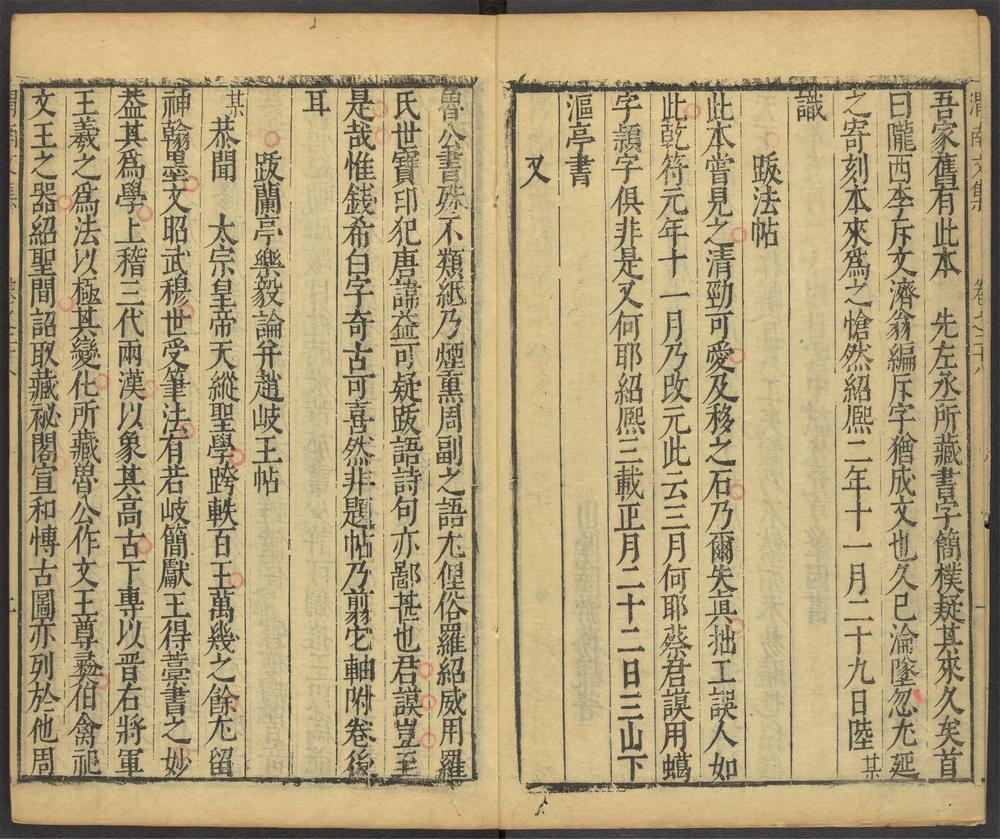 渭南文集
卷之二十八
吾家舊有此本　先左丞所藏書字簡樸疑其來久矣首
曰隴西本斥文濟翁編斥字猶成文也久已淪墜忽尤延
之寄刻本來爲之愴然紹熙二年十一月二十九日陸某
識
跋法帖
此本嘗見之清勁可愛及移之石乃爾失真拙工誤人如
此乾符元年十一月乃改元此云三月何耶蔡君謨用蠲
字顥字俱非是又何耶紹熙三載正月二十二日三山下
漚亭書
又
魯公書殊不類紙乃煙熏周副之語尤俚俗羅紹威用羅
氏世寶印犯唐諱益可疑跋語詩句亦鄙甚也君謨豈至
是哉惟錢希白字奇古可喜然非題帖乃翦它軸附卷後
耳
跋蘭亭樂毅論并趙岐王帖
某恭聞　太宗皇帝天縱聖學跨軼百王萬幾之餘尤留
神翰墨文昭武穆世受筆法有若岐簡獻王得藁書之妙
葢其爲學上稽三代兩漢以象其高古下專以晋右將軍
王羲之爲法以極其變化所藏魯公作文王尊彝伯禽祀
文王之器紹聖間詔取藏祕閣宣和博古圖亦列於他周